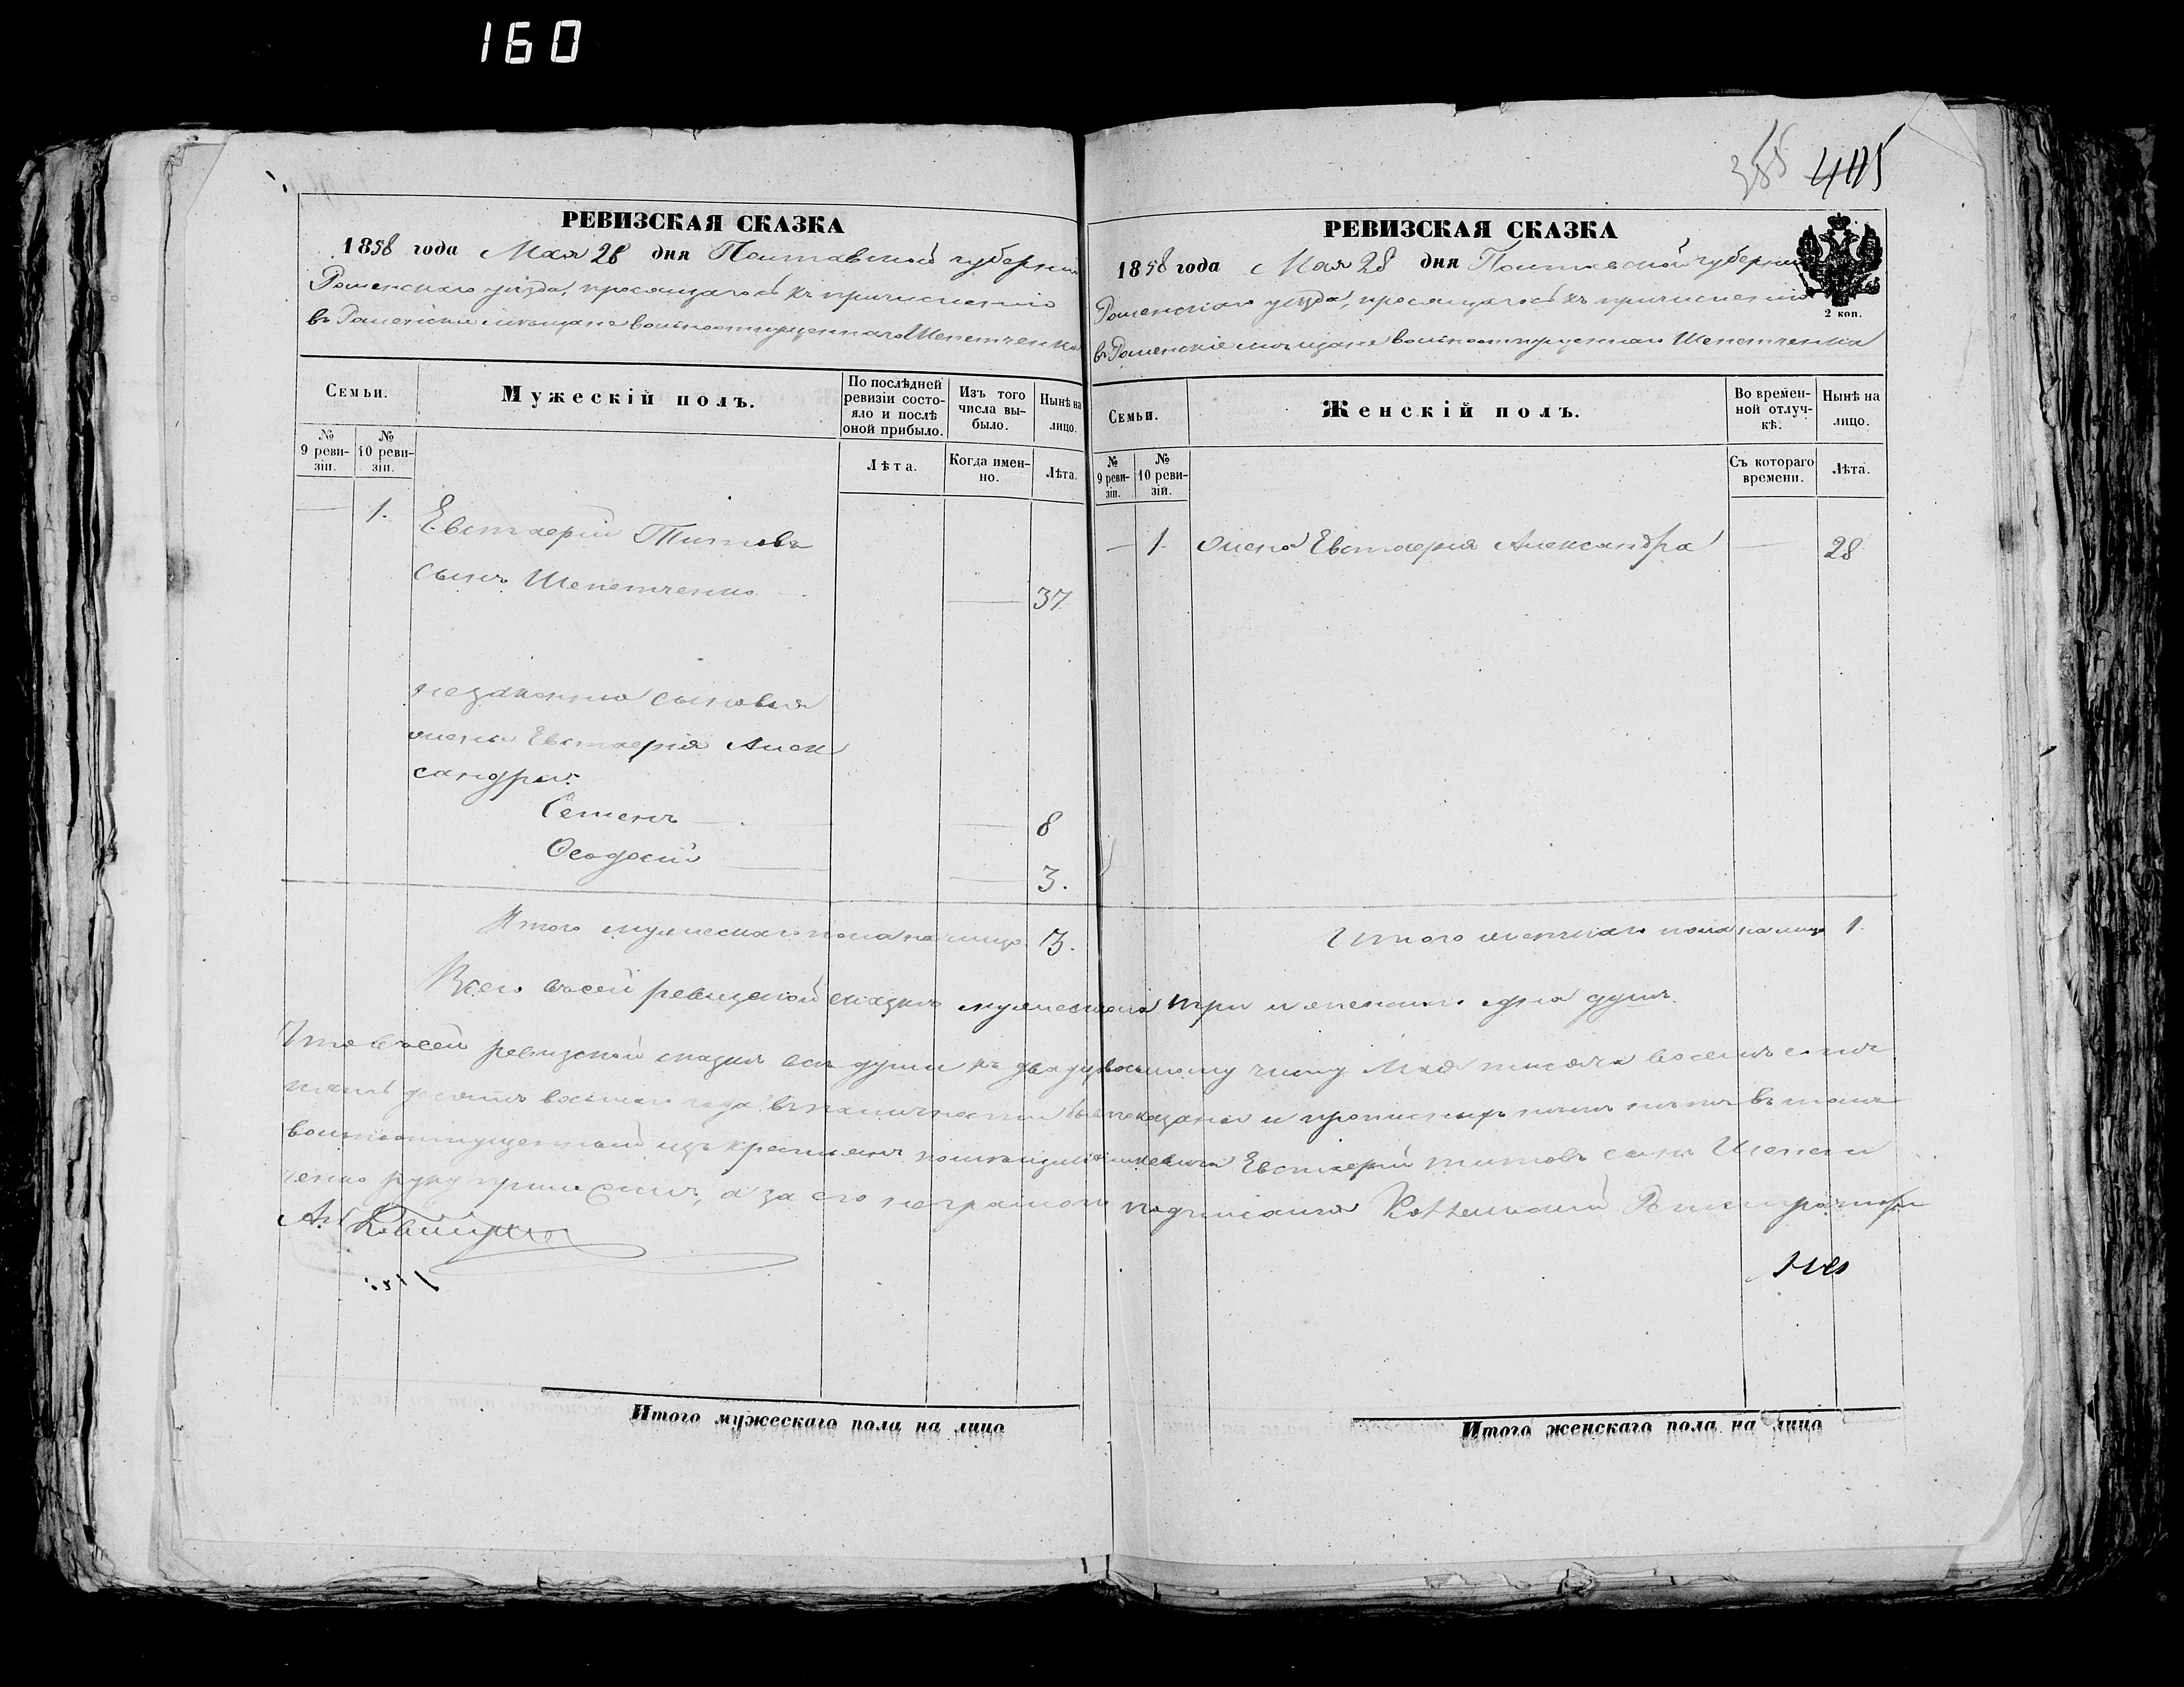 160
355 445
РЕВИЗСКАЯ СКАЗКА
1858 года Мая 28 дня Полтавской губернии
Роменскаго уѣзда, просящагося къ причисленію
въ Роменскіе мѣщане вольноотпущеннаго Шепетченка
Семьи.
Мужескій полъ.
По послѣдней ревизіи состояло и послѣ оной прибыло.
Изъ того числа выбыло.
Нынѣ на лицо.
№ 9 ревизіи.
№ 10 ревизіи.
Лѣта.
Когда именно.
Лѣта.
— 1. Евстаерій Титовъ
сынъ Шепетченко — 37
незаконно сыновья
жены Евстаерія Алек
сандры:
Семенъ — 8
Ѳеодосій — 3.
Итого мужескаго пола на лицо 3.
РЕВИЗСКАЯ СКАЗКА
1858 года Мая 28 дня Полтавской губерніи
Роменскаго уѣзда, просящагося къ причисленію
въ Роменскіе мѣщане вольноотпущеннаго Шепетченка
2 коп.
Семьи.
Женскій полъ.
Во временной отлучкѣ.
Нынѣ на лицо.
№ 9 ревизіи.
№ 10 ревизій.
Съ котораго времени.
Лѣта.
— 1. жена Евстаерія Александра — 28
Итого женскаго пола на лицо 1.
Всего въ сей ревизской сказкѣ мужескаго три и женскаго одна душъ.
Что въ сей ревизской сказкѣ всѣ души къ двадцать восьмому числу Мая тысяча восемь сотъ
пять десятъ восьмаго года въ наличности показаны и прописныхъ нѣтъ въ томъ
вольноотпущенный изъ крестьянъ Евстаерій Титовъ сынъ Шепет
ченко руку приложилъ, а за его неграмотн подписался Коллежскій Регистраторъ
Итого мужескаго пола на лицо
Итого женскаго пола на лицо